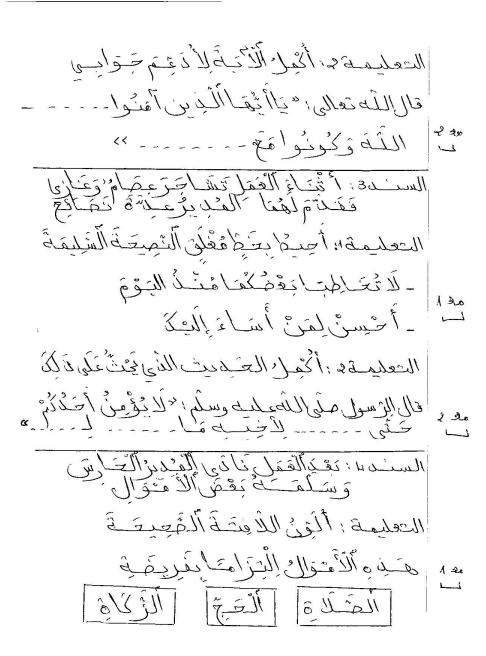 التعليمة 2: أُكْمِلُ الْآيَةَ لِأُدَعِّمَ جَوَابِي
قال الله تعالى: "يَا أَيُّهَا الَّذِينَ آمَنُوا ......
اللَّهَ وَكُونُوا مَعَ ........."
السند 3: أَثْنَاءَ الْعَمَلِ تَشَاجَرَ عِصَامُ وَغَازِي
فَقَدَّمَ لَهُمَا الْمُدِيرُ عِدَّةَ نَصَائِحَ
التعليمة 1: أُحِيطُ بِخَطٍّ مُغْلَقٍ النَّصِيحَةَ السَّلِيمَةَ
- لَا تُخَاطِبَا بَعْضَكُمَا مُنْذُ الْيَوْمَ
- أَحْسِنْ لِمَنْ أَسَاءَ إِلَيْكَ
التعليمة 2: أُكْمِلُ الحديث الذي يَحُثُّ عَلَى ذَلِكَ
قال الرسول صلّى الله عليه وسلم: "لَا يُؤْمِنُ أَحَدُكُمْ
حَتَّى ........ لِأَخِيهِ مَا ........ لِـ ........"
السند 4: بَعْدَ الْعَمَلِ نَادَى الْمُدِيرُ الْحَارِسَ
وَسَلَّمَهُ بَعْضَ الْأَمْوَالِ
التعليمة: أُلَوِّنُ اللَّافِتَةَ الصَّحِيحَةَ
هَذِهِ الْأَمْوَالُ الْتِزَامًا بِفَرِيضَةِ
الصَّلَاةِ الْحَجِّ الزَّكَاةِ